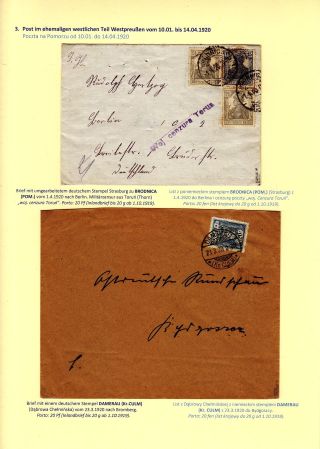 3. Post im ehemaligen westlichen Teil Westpreußen vom 10.01. bis 14.04.1920
Poczta na Pomorzu od 10.01. do 14.04.1920
Rudolph
Berlin
Woj. cenzura Toruń
Deutschland
Brief mit umgearbeitetem deutschen Stempel Strasburg zu BRODNICA
(POM.) vom 1.4.1920 nach Berlin. Militärzensur aus Toruń (Thorn)
„woj. cenzura Toruń“. Porto: 20 Pf (Inlandbrief bis 20 g ab 1.10.1919).
List z poniemieckim stemplem BRODNICA (POM.) (Strasburg) z
1.4.1920 do Berlina i cenzurą poczty „woj. Cenzura Toruń“.
Porto: 20 fen (list krajowy do 20 g od 1.10.1919).
Ostdeutsche Rundschau
Bydgoszcz
Brief mit einem deutschen Stempel DAMERAU (Kr.CULM)
(Dąbrowa Chełmińska) vom 23.3.1920 nach Bromberg.
Porto: 20 Pf (Inlandbrief bis 20 g ab 1.10.1919).
List z Dąbrowy Chełmińskiej z niemieckim stemplem DAMERAU
(Kr. CULM) z 23.3.1920 do Bydgoszczy.
Porto: 20 fen (list krajowy do 20 g od 1.10.1919).